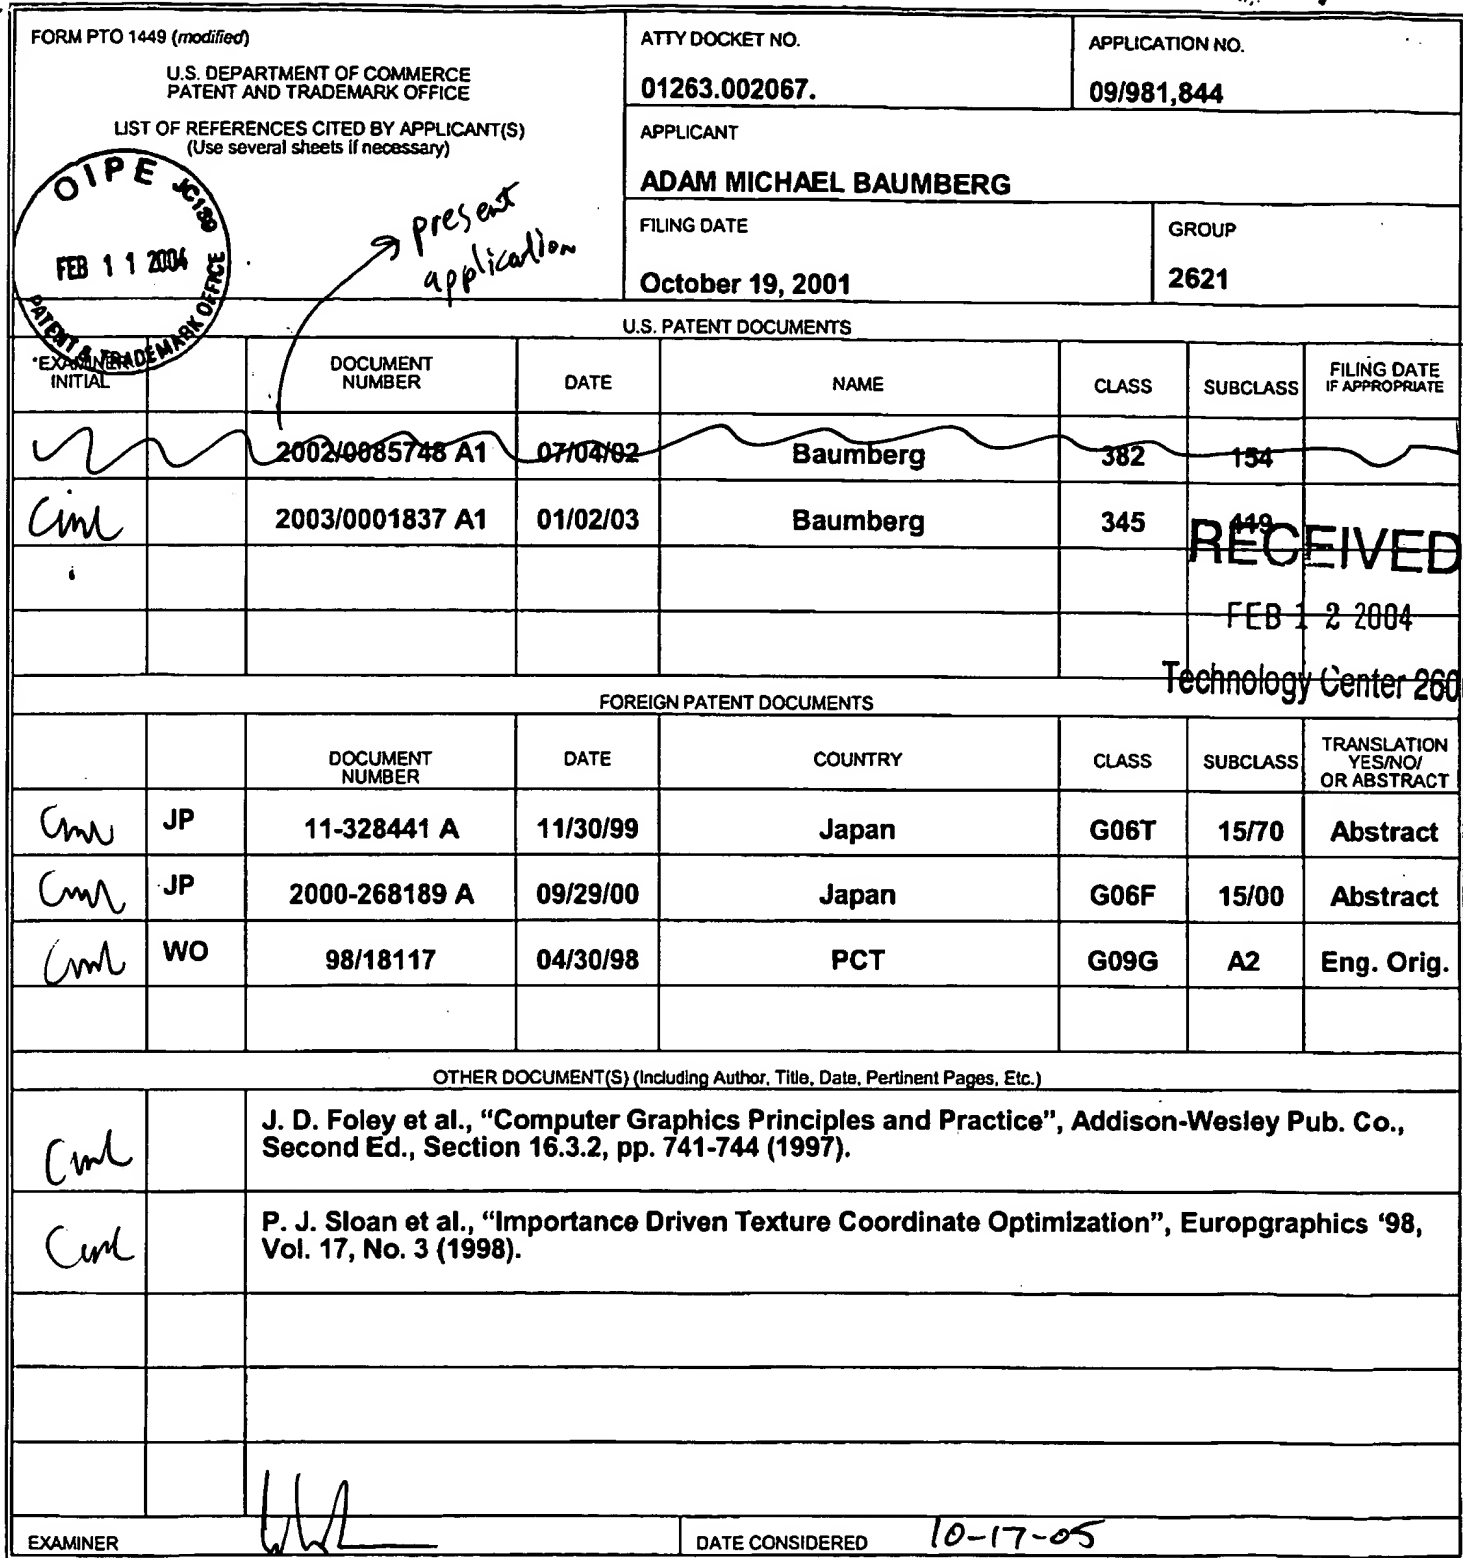 FORM PTO 1449 (modified)
U.S. DEPARTMENT OF COMMERCE
PATENT AND TRADEMARK OFFICE
LIST OF REFERENCES CITED BY APPLICANT(S)
(Use several sheets if necessary)
ATTY DOCKET NO.
01263.002067.
APPLICATION NO.
09/981,844
APPLICANT
ADAM MICHAEL BAUMBERG
FILING DATE
October 19, 2001
GROUP
2621
OIPE JC139
FEB 11 2004
PATENT & TRADEMARK OFFICE
present
application
U.S. PATENT DOCUMENTS
*EXAMINER INITIAL DOCUMENT NUMBER DATE NAME CLASS SUBCLASS FILING DATE IF APPROPRIATE
2002/0085748 A1 07/04/02 Baumberg 382 154
2003/0001837 A1 01/02/03 Baumberg 345 419
RECEIVED
FEB 12 2004
Technology Center 260
FOREIGN PATENT DOCUMENTS
DOCUMENT NUMBER DATE COUNTRY CLASS SUBCLASS TRANSLATION YES/NO/ OR ABSTRACT
JP 11-328441 A 11/30/99 Japan G06T 15/70 Abstract
JP 2000-268189 A 09/29/00 Japan G06F 15/00 Abstract
WO 98/18117 04/30/98 PCT G09G A2 Eng. Orig.
OTHER DOCUMENT(S) (Including Author, Title, Date, Pertinent Pages, Etc.)
J. D. Foley et al., “Computer Graphics Principles and Practice”, Addison-Wesley Pub. Co.,
Second Ed., Section 16.3.2, pp. 741-744 (1997).
P. J. Sloan et al., “Importance Driven Texture Coordinate Optimization”, Europgraphics ‘98,
Vol. 17, No. 3 (1998).
EXAMINER
DATE CONSIDERED 10-17-05